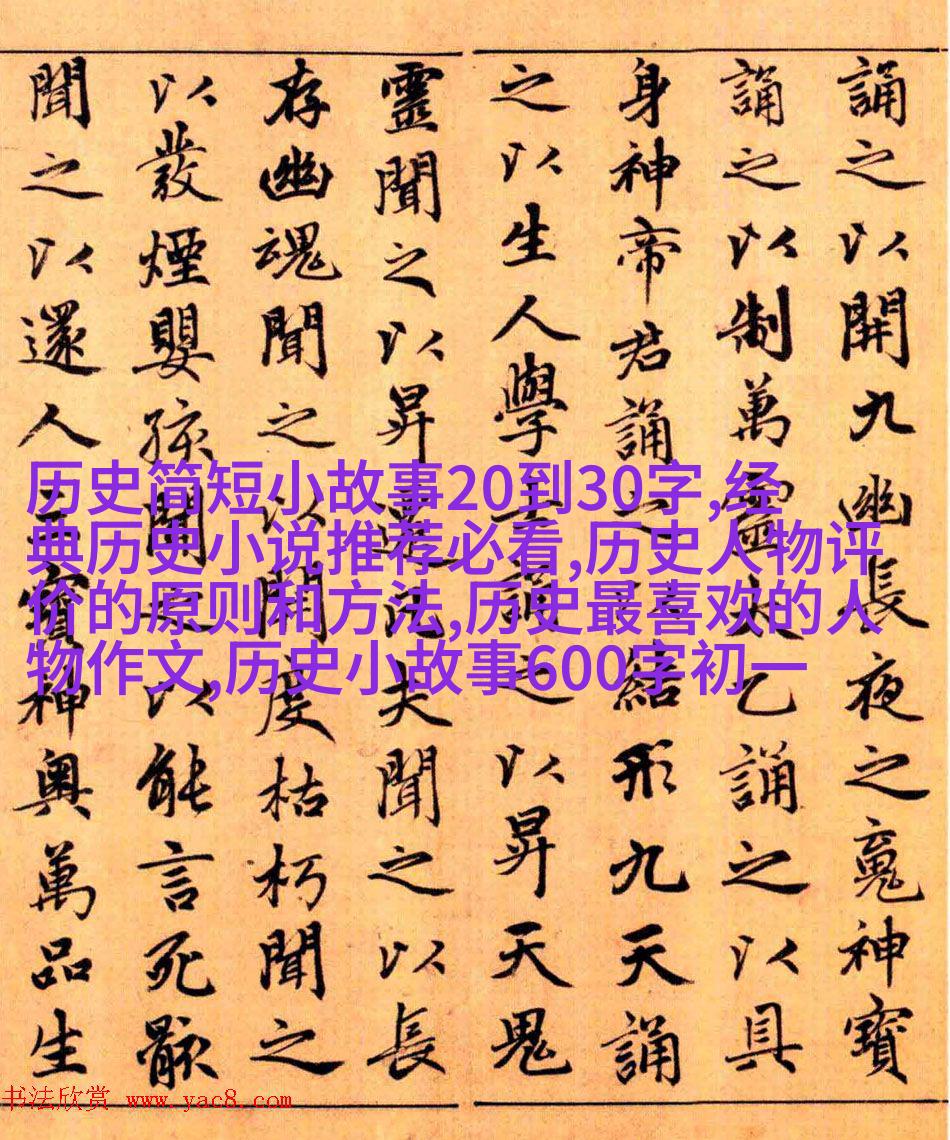 誦之以開九幽長夜之魂神寶
誦之以制萬靈太乙誦之以具
身神帝君誦之以結形九天誦
之以生人學士誦之以昇天鬼
靈聞之以昇遷凶夫聞之以長
存幽魂聞之以開度枯朽聞之
以發煙嬰孩聞之以能言死骸
聞之以還人是寶神奧萬品生
历史简短小故事20到30字,经
典历史小说推荐必看,历史人物评
价的原则和方法,历史最喜欢的人
物作文,历史小故事600字初一
书法欣赏 www.yac8.com